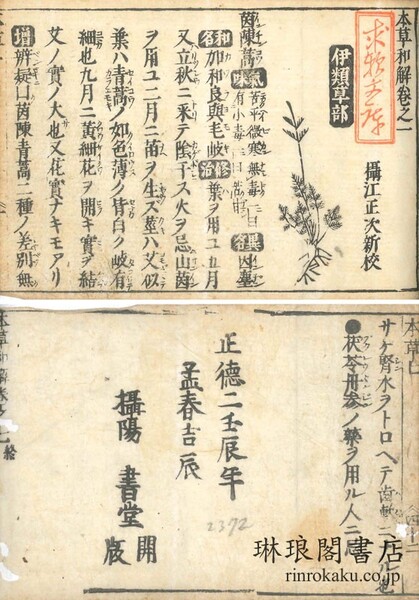 本草和解卷之一
攝江正次新校
伊類草部
茵陳蒿
氣味
苦平微寒無毒
異名
因塵
和名
加和良與毛岐
修治
葉ヲ用ユ五月
又立秋ニ采テ陰干ス火ヲ忌山茵
ヲ用ユ二月ニ苗ヲ生ズ莖ハ艾ニ似
葉ハ青蒿ノ如色薄ク皆白ク岐有
細也九月ニ黄細花ヲ開キ實ヲ結
艾ノ實ノ大也又花實ナキモアリ
増
辨疑曰茵陳青蒿二種ノ差別無
サケ腎水ヲトロヘテ齒
●茯苓丹参ノ藥ヲ用ル人ニ
正德二壬辰年
孟春吉辰
攝陽 書堂 開版
2372
琳琅閣書店
rinrokaku.co.jp